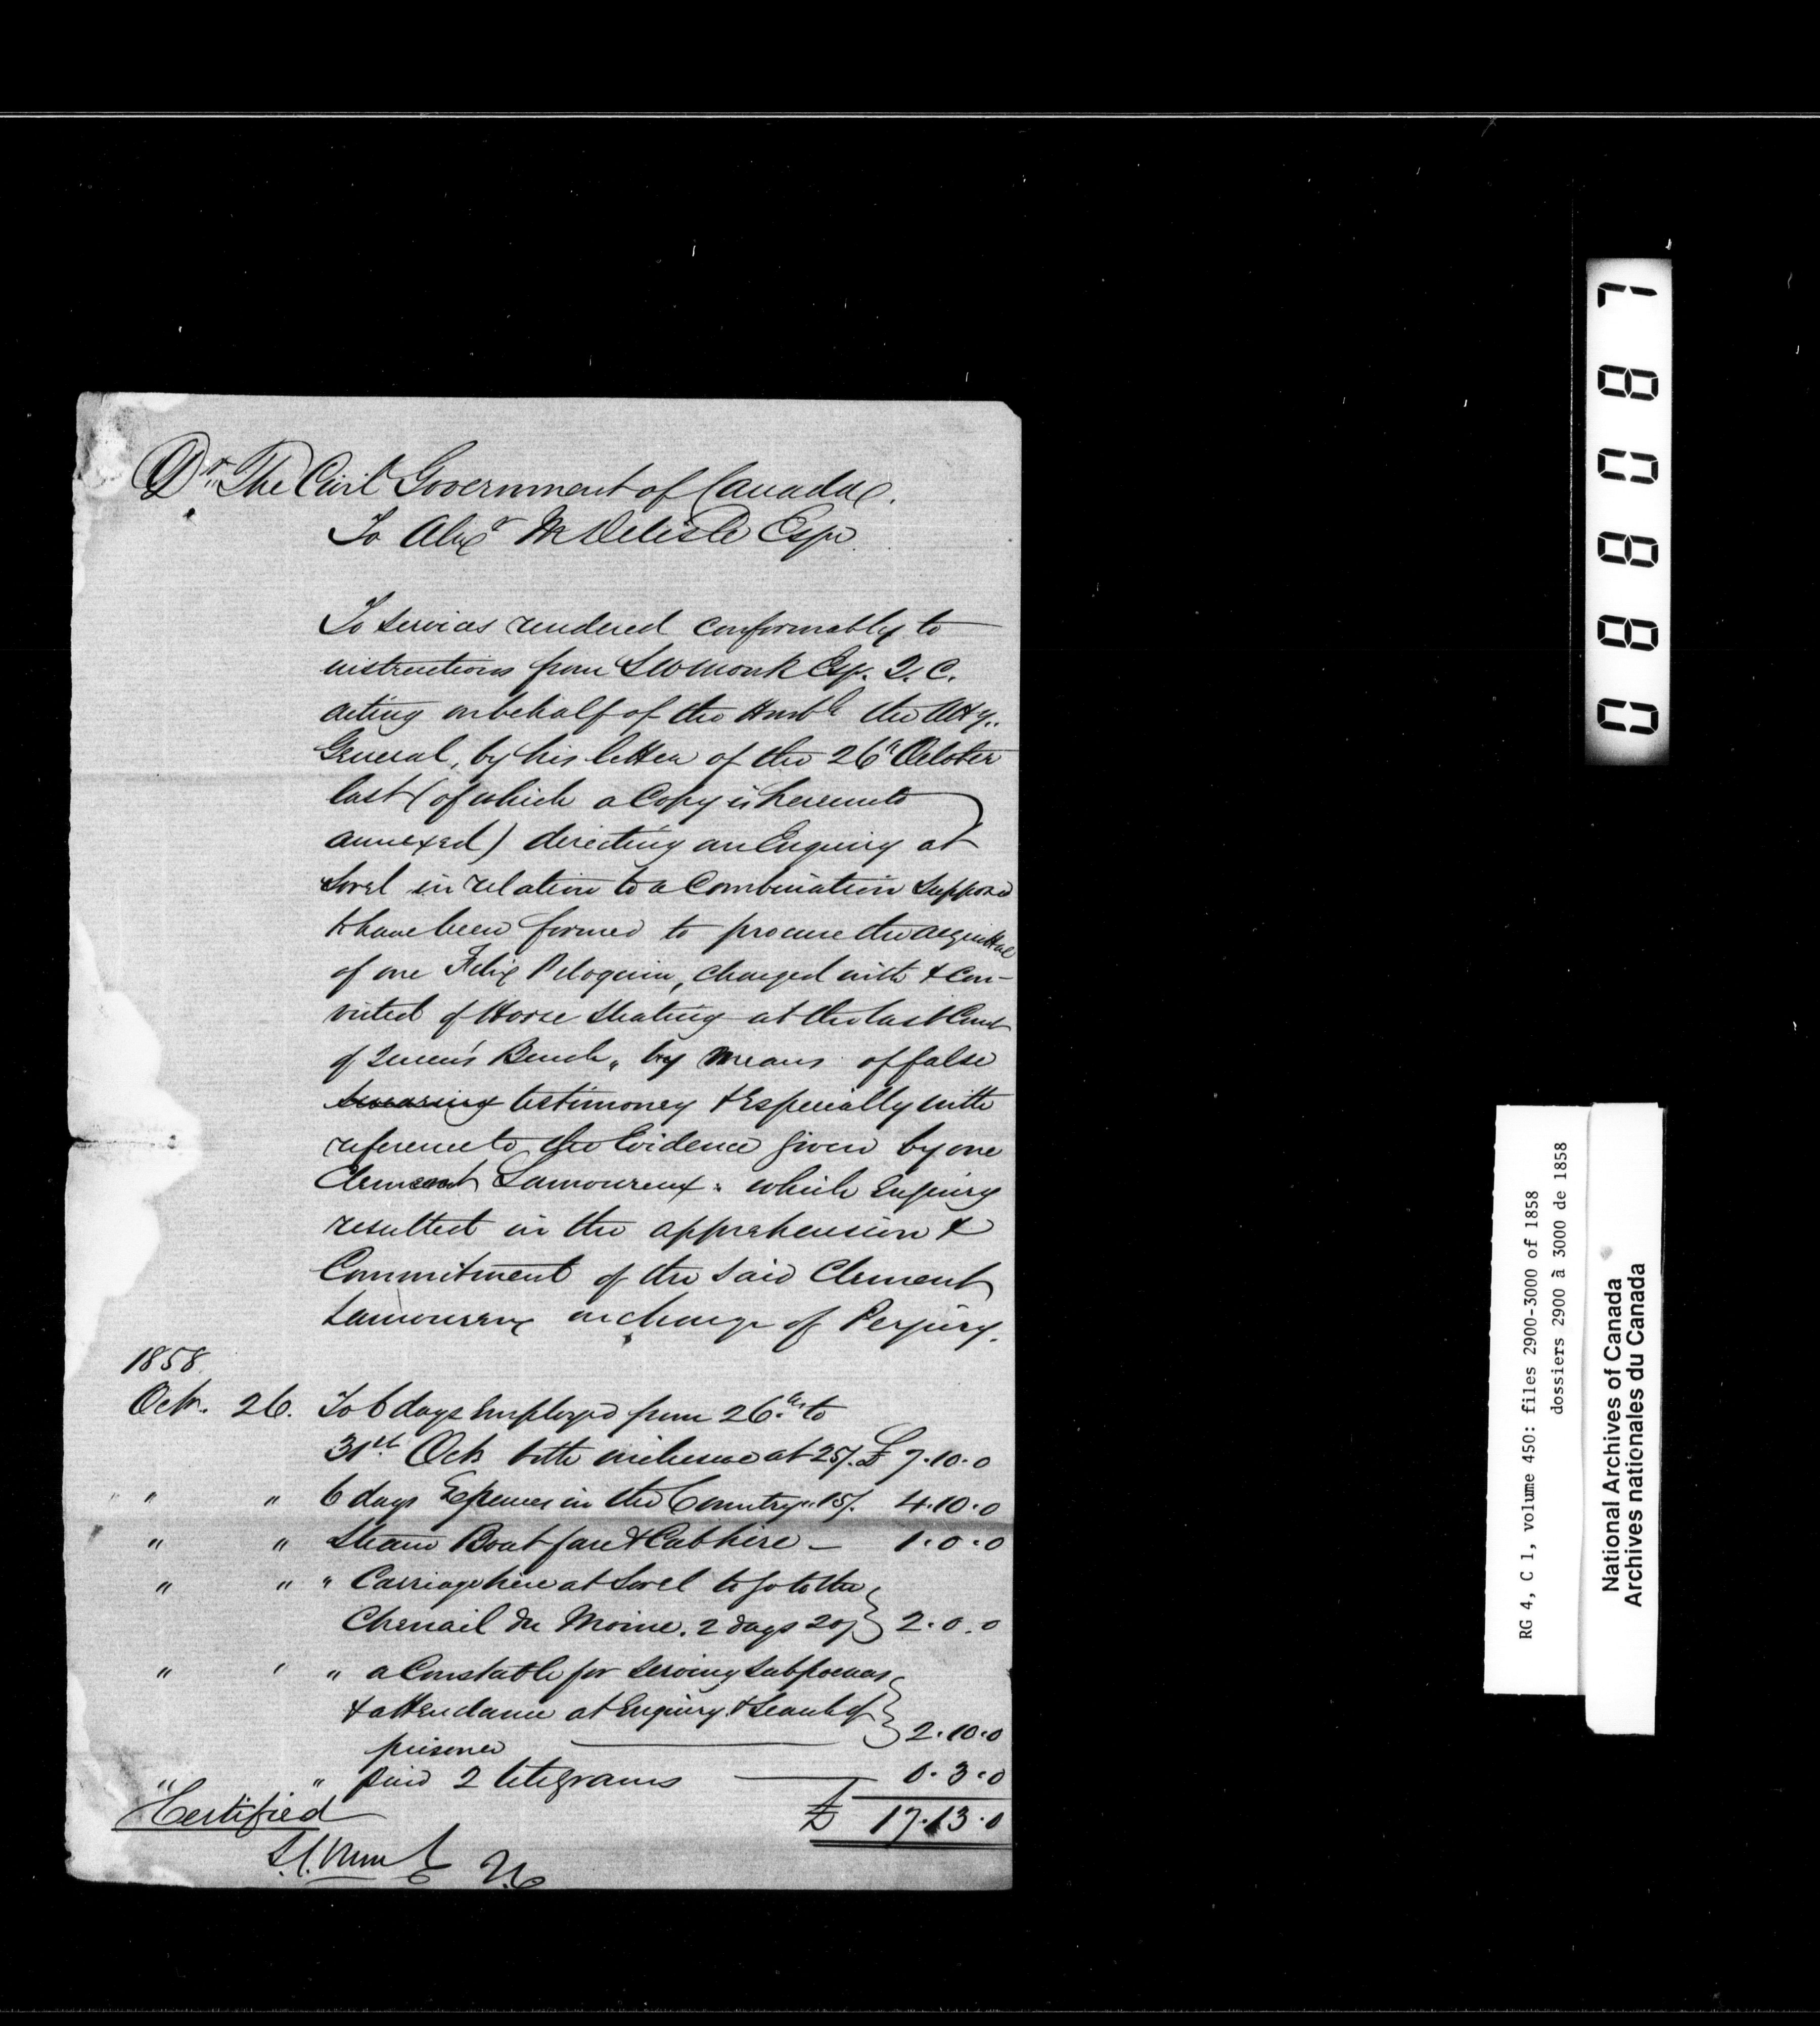 Dr. The Civil Government of Canada.
To Alexr M Delisle Esqr.
To services rendered conformably to
instructions from S W Monk Esq. Q. C.
acting on behalf of the Honble the Atty.
General, by his letter of the 26th October
last (of which a Copy is hereunto
annexed) directing an Enquiry at
Sorel in relation to a Combination Supposed
to have been formed to procure the acquittal
of one Felix Peloquin, charged with & con-
victed of Horse Stealing at the last Court
of Queen's Bench, by means of false
swearing testimoney & Especially with
reference to the Evidence given by one
Clement Lamoureux: which Enquiry
resulted in the apprehension &
Commitment of the said Clement
Lamoureux on charge of Perjury.
1858.
Octr. 26. To 6 days Employed from 26th to
31st Octr both inclusive at 25/. £ 7.10.0
" " 6 days Expenses in the Country " 15/. 4.10.0
" " Steam Boat fare & Cab hire — 1.0.0
" " " Carriage hire at Sorel to go to the
Chenail du Moine. 2 days 20/ 2.0.0
" " " a Constable for serving subpoenas
& attendance at Enquiry & Search of
prisoner 2.10.0
" " paid 2 telegrams 0.3.0
Certified
£ 17.13.0
QC
088087
RG 4, C 1, volume 450: files 2900-3000 of 1858
dossiers 2900 à 3000 de 1858
National Archives of Canada
Archives nationales du Canada